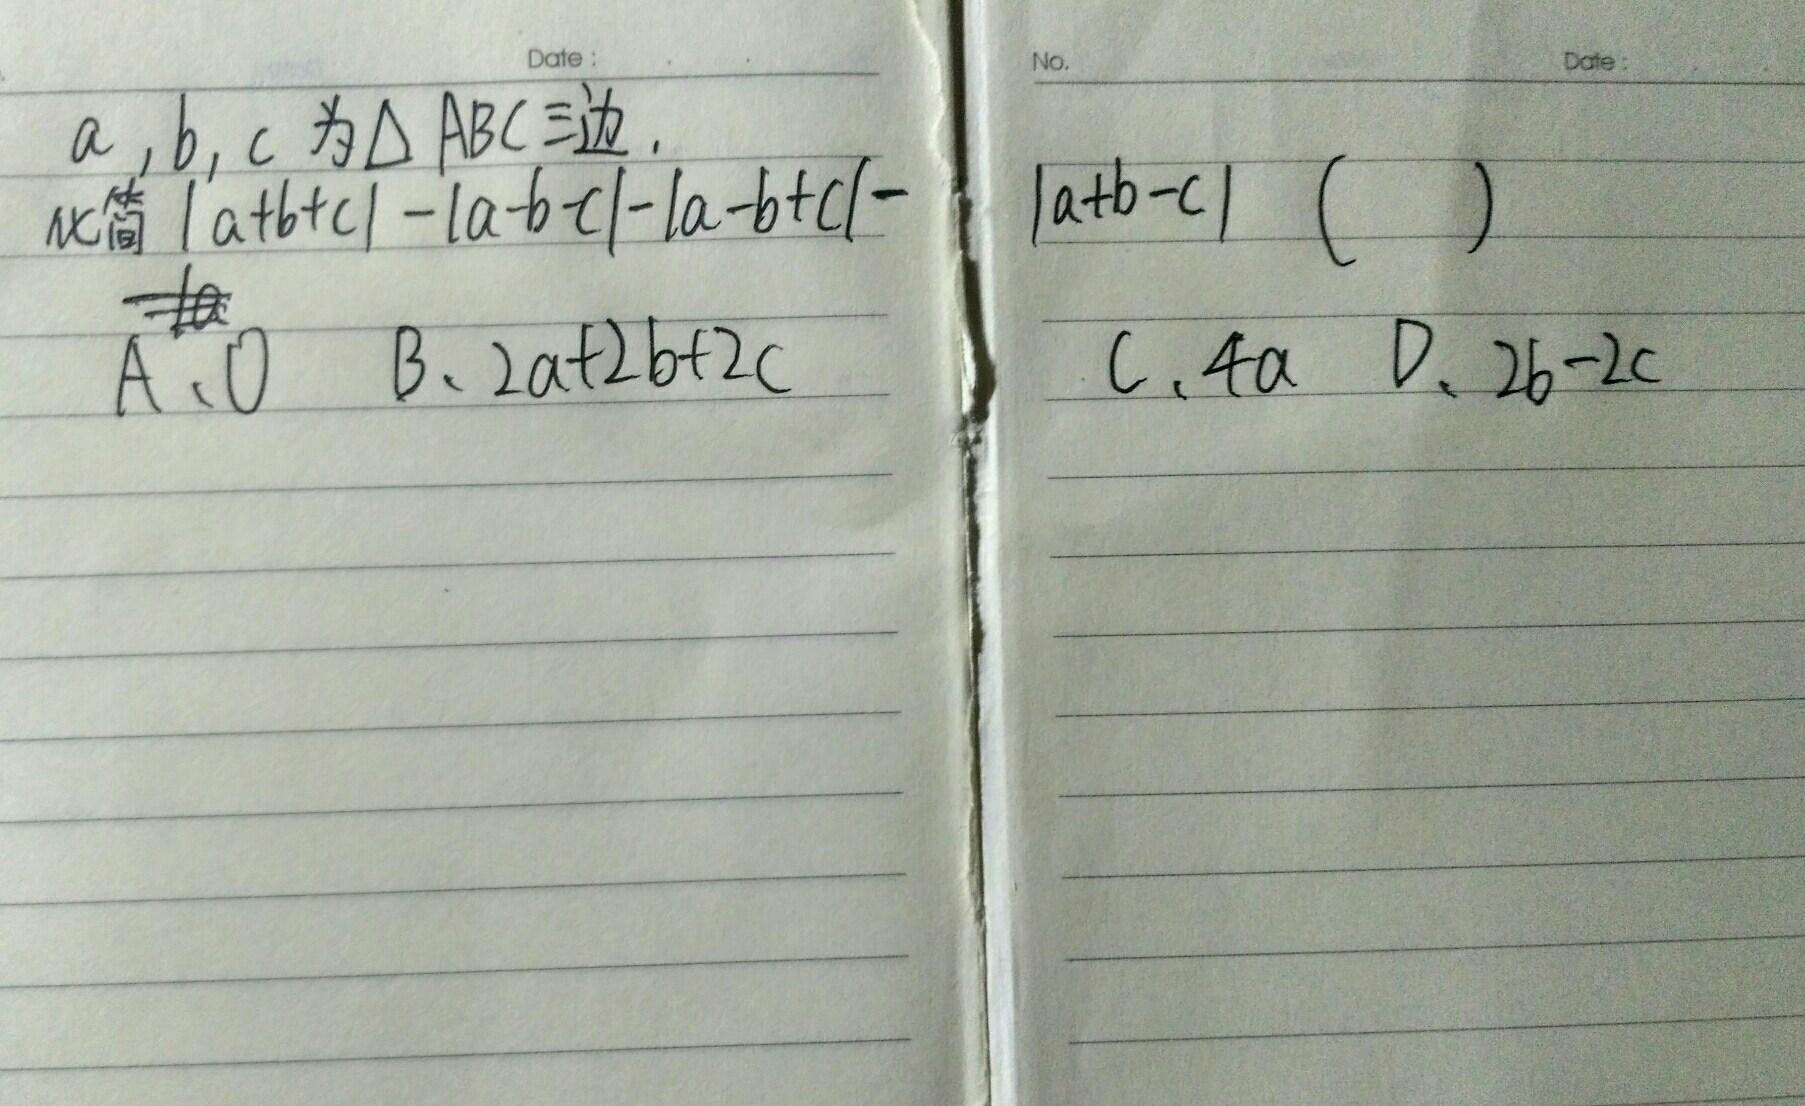 Date :
No. Date :
a , b , c 为 △ ABC 三边 .
化简 |a+b+c| -|a-b-c|-|a-b+c|- |a+b-c| ( )
A、0 B、2a+2b+2c C、4a D、2b-2c